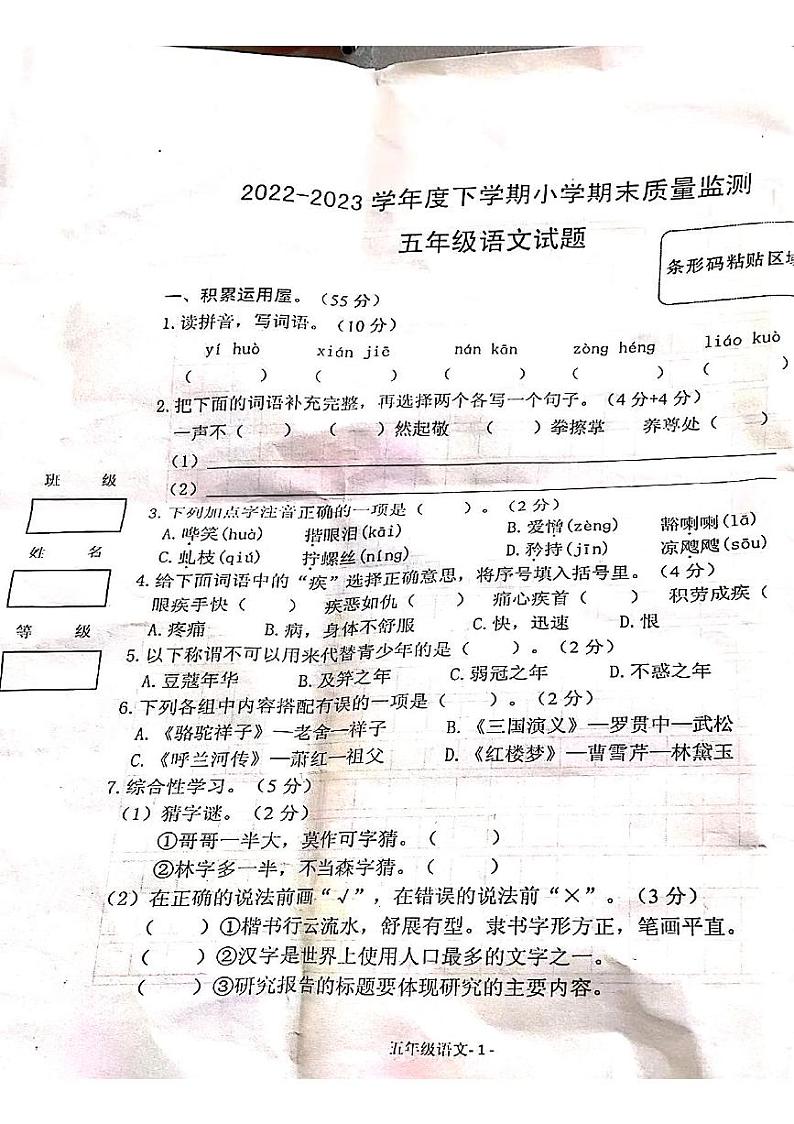 2022-2023 学年度下学期小学期末质量监测
五年级语文试题
条形码粘贴区域
一、积累运用屋。（55 分）
1. 读拼音，写词语。（10 分）
yí huò xián jiē nán kān zòng héng liáo kuò
（ ） （ ） （ ） （ ） （ ）
2. 把下面的词语补充完整，再选择两个各写一个句子。（4 分+4 分）
一声不（ ） （ ）然起敬 （ ）拳擦掌 养尊处（ ）
（1）
（2）
班 级
3. 下列加点字注音正确的一项是（ ）。（2 分）
A. 哗笑(huà) 揩眼泪(kāi) B. 爱憎(zèng) 豁喇喇(lā)
姓 名
C. 虬枝(qiú) 拧螺丝(níng) D. 矜持(jīn) 凉飕飕(sōu)
4. 给下面词语中的“疾”选择正确意思，将序号填入括号里。（4 分）
眼疾手快（ ） 疾恶如仇（ ） 痛心疾首（ ） 积劳成疾（
等 级
A. 疼痛 B. 病，身体不舒服 C. 快，迅速 D. 恨
5. 以下称谓不可以用来代替青少年的是（ ）。（2 分）
A. 豆蔻年华 B. 及笄之年 C. 弱冠之年 D. 不惑之年
6. 下列各组中内容搭配有误的一项是（ ）。（2 分）
A. 《骆驼祥子》—老舍—祥子 B. 《三国演义》—罗贯中—武松
C. 《呼兰河传》—萧红—祖父 D. 《红楼梦》—曹雪芹—林黛玉
7. 综合性学习。（5 分）
（1）猜字谜。（2 分）
①哥哥一半大，莫作可字猜。（ ）
②林字多一半，不当森字猜。（ ）
（2）在正确的说法前画“√”，在错误的说法前“×”。（3 分）
（ ）①楷书行云流水，舒展有型。隶书字形方正，笔画平直。
（ ）②汉字是世界上使用人口最多的文字之一。
（ ）③研究报告的标题要体现研究的主要内容。
五年级语文- 1 -